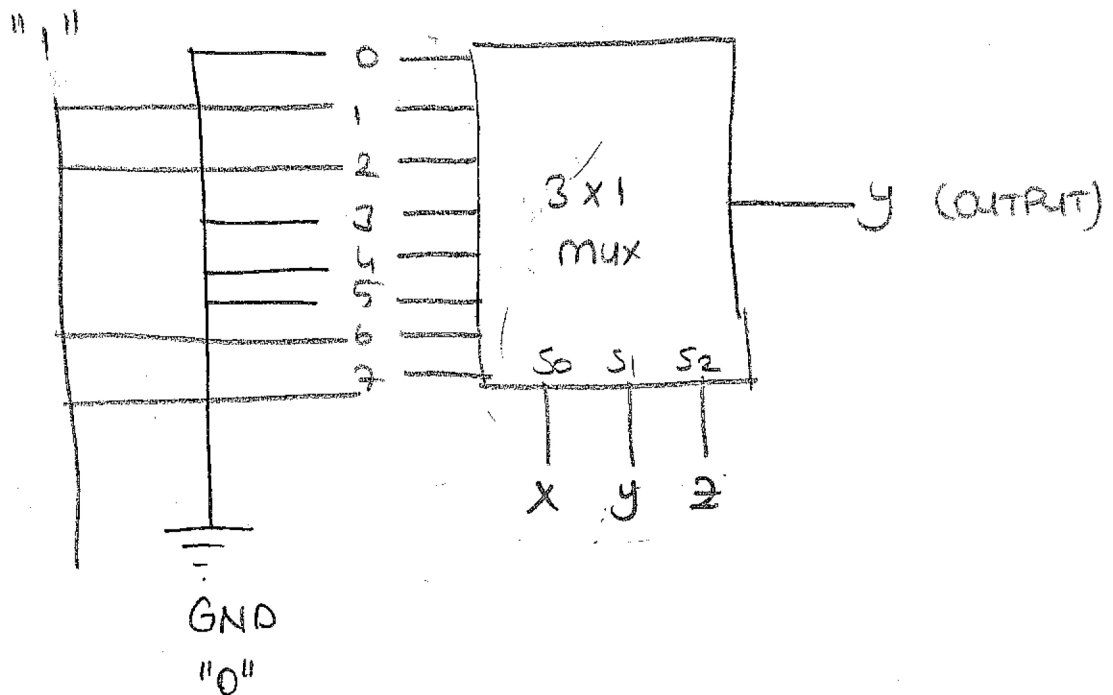 "1"
0
1
2
3
4
5
6
7
3x1
mux
y (OUTPUT)
S0 S1 S2
x y z
GND
"0"